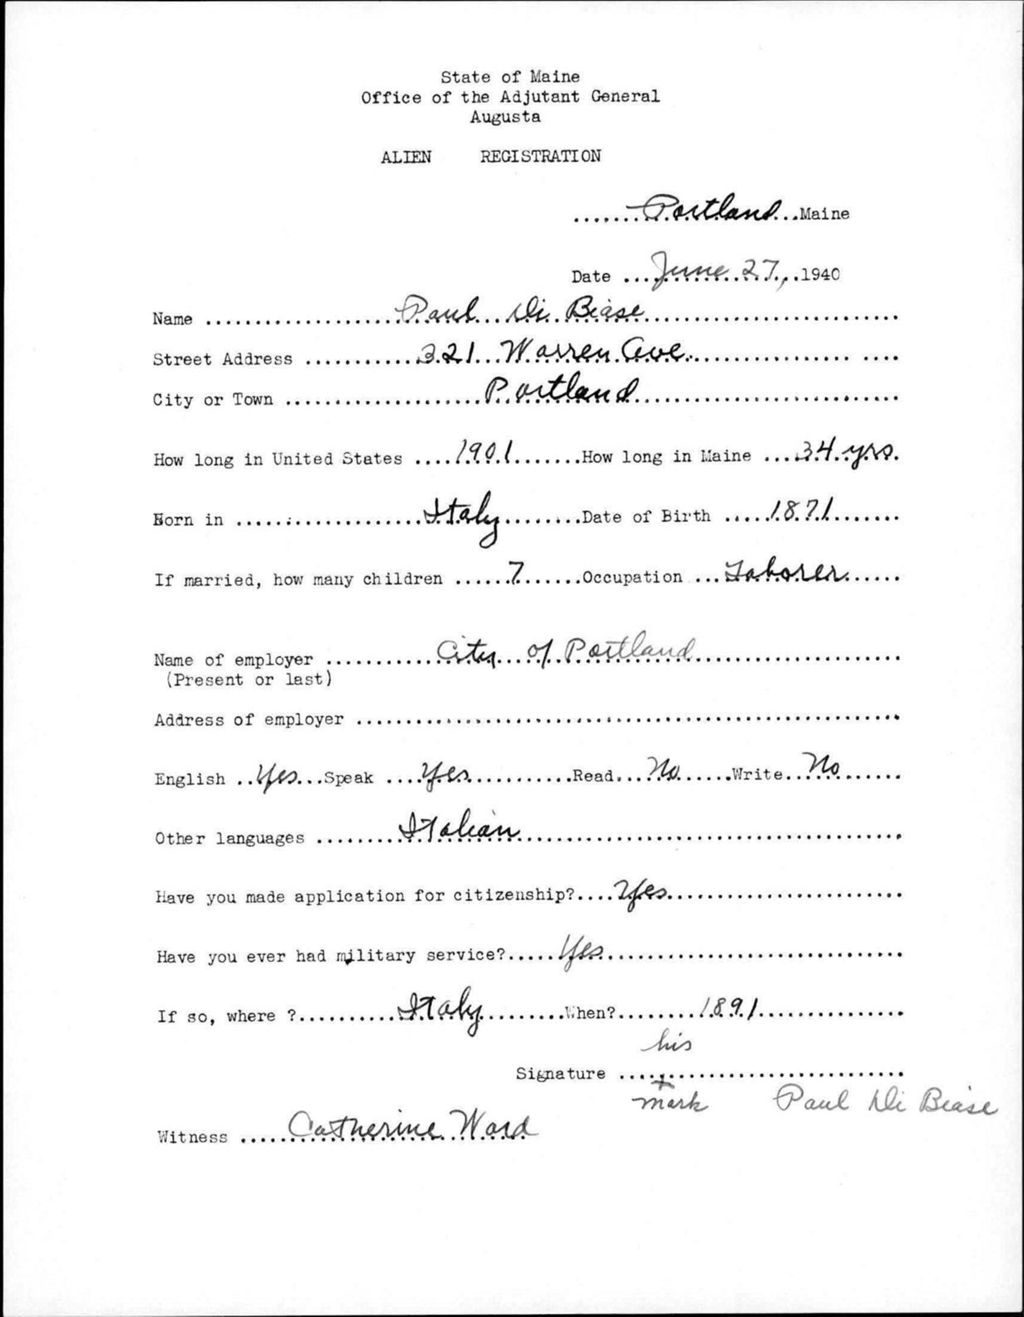 State of Maine
Office of the Adjutant General
Augusta
ALIEN REGISTRATION
Portland Maine
Date June 27, 1940
Name Paul Di Biase
Street Address 321 Warren Ave.
City or Town Portland
How long in United States 1901 How long in Maine 34 yrs.
Born in Italy Date of Birth 1871
If married, how many children 7 Occupation Laborer
Name of employer City of Portland
(Present or last)
Address of employer
English Yes Speak Yes Read No Write No
Other languages Italian
Have you made application for citizenship? Yes
Have you ever had military service? Yes
If so, where ? Italy When? 1891
his
Signature +
mark Paul Di Biase
Witness Catherine Ward